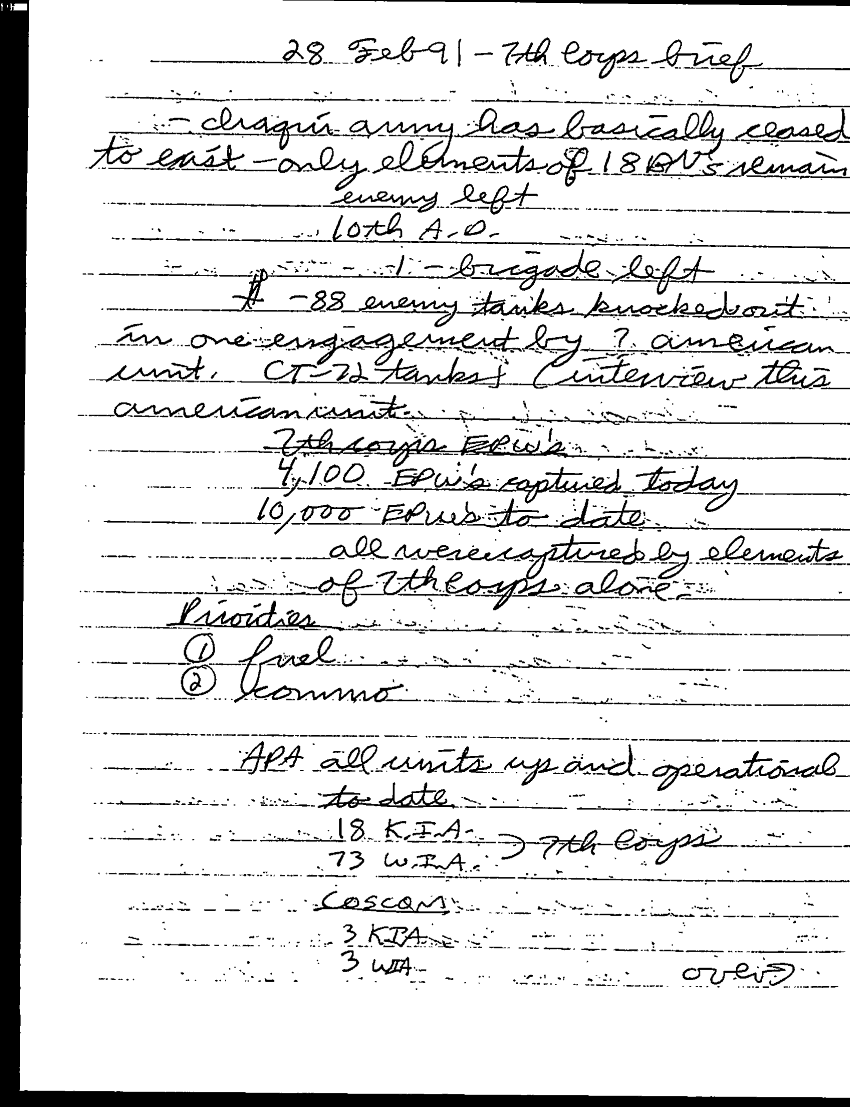 28 Feb 91 - 7th Corps brief
- Iraqui army has basically ceased
to exist - only elements of 18 remain
enemy left
10th A.D.
1 - brigade left
- 88 enemy tanks knocked out
in one engagement by ? american
unit. (T-72 tanks) (interview this
american unit.
7th corps EPW's
4,100 EPW's captured today
10,000 EPW's to date
all were captured by elements
of 7th Corps alone.
Priorities
① fuel
② commo
APA all units up and operational
to date
18 K.I.A.
73 W.I.A. } 7th Corps
COSCOM
3 KIA
3 WIA
over→